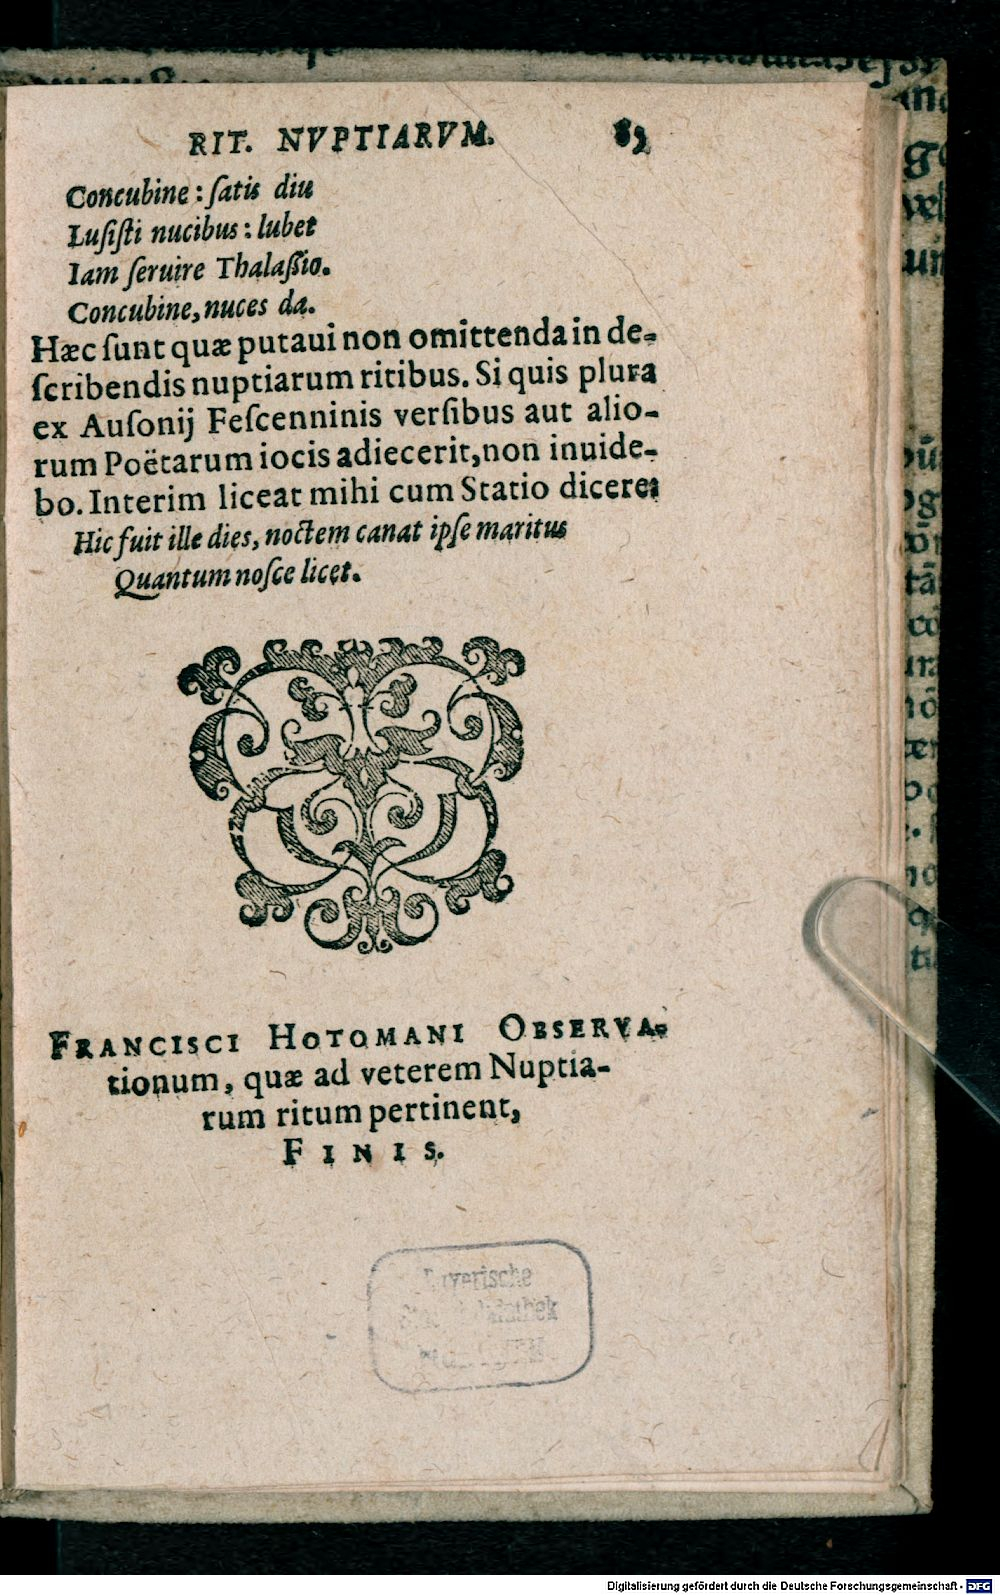 RIT. NVPTIARVM. 89
Concubine: ſatis diu
Luſiſti nucibus: lubet
Iam ſeruire Thalaßio.
Concubine, nuces da.
Hæc ſunt quæ putaui non omittenda in de-
ſcribendis nuptiarum ritibus. Si quis plura
ex Auſonij Feſcenninis verſibus aut alio-
rum Poëtarum iocis adiecerit, non inuide-
bo. Interim liceat mihi cum Statio dicere:
Hic fuit ille dies, noctem canat ipſe maritus
Quantum noſce licet.
FRANCISCI HOTOMANI OBSERVA-
tionum, quæ ad veterem Nuptia-
rum ritum pertinent,
FINIS.
Bayerische
Digitalisierung gefördert durch die Deutsche Forschungsgemeinschaft - DFG